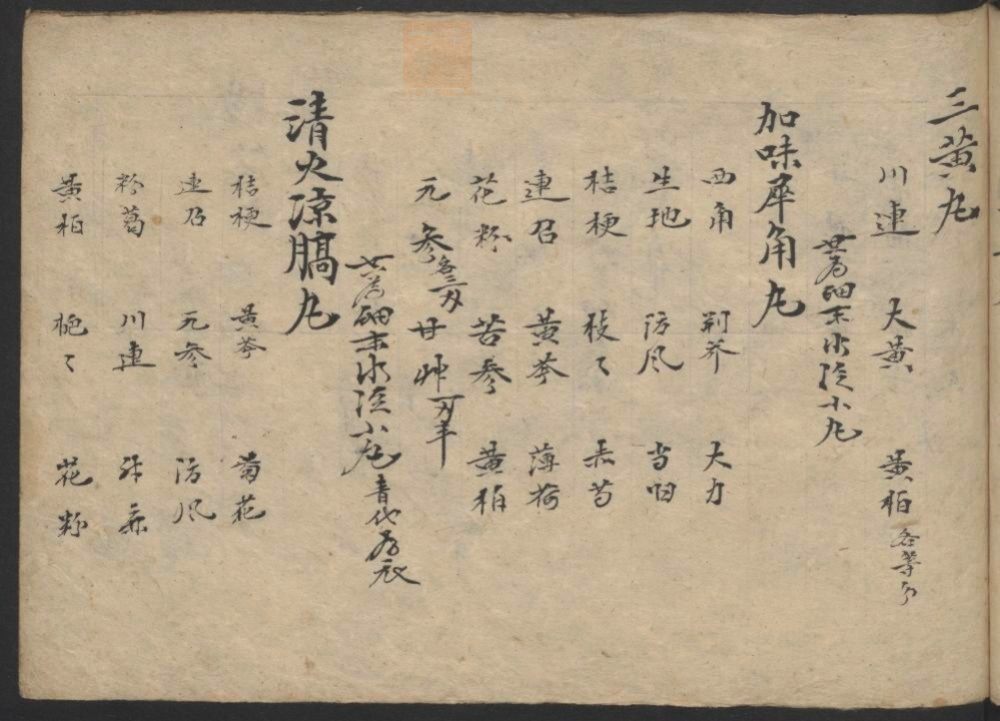 三黄丸
川連 大黄 黄柏 各等分
共為細末水泛小丸
加味犀角丸
西角 荆芥 大力
生地 防风 当归
桔梗 枝々 赤芍
連召 黄芩 薄荷
花粉 苦参 黄柏
元参各三刄 甘艸一刄半
共為細末水泛小丸 青代為衣
清火凉膈丸
桔梗 黄芩 菊花
連召 元参 防风
粉葛 川連
黄柏 栀々 花粉